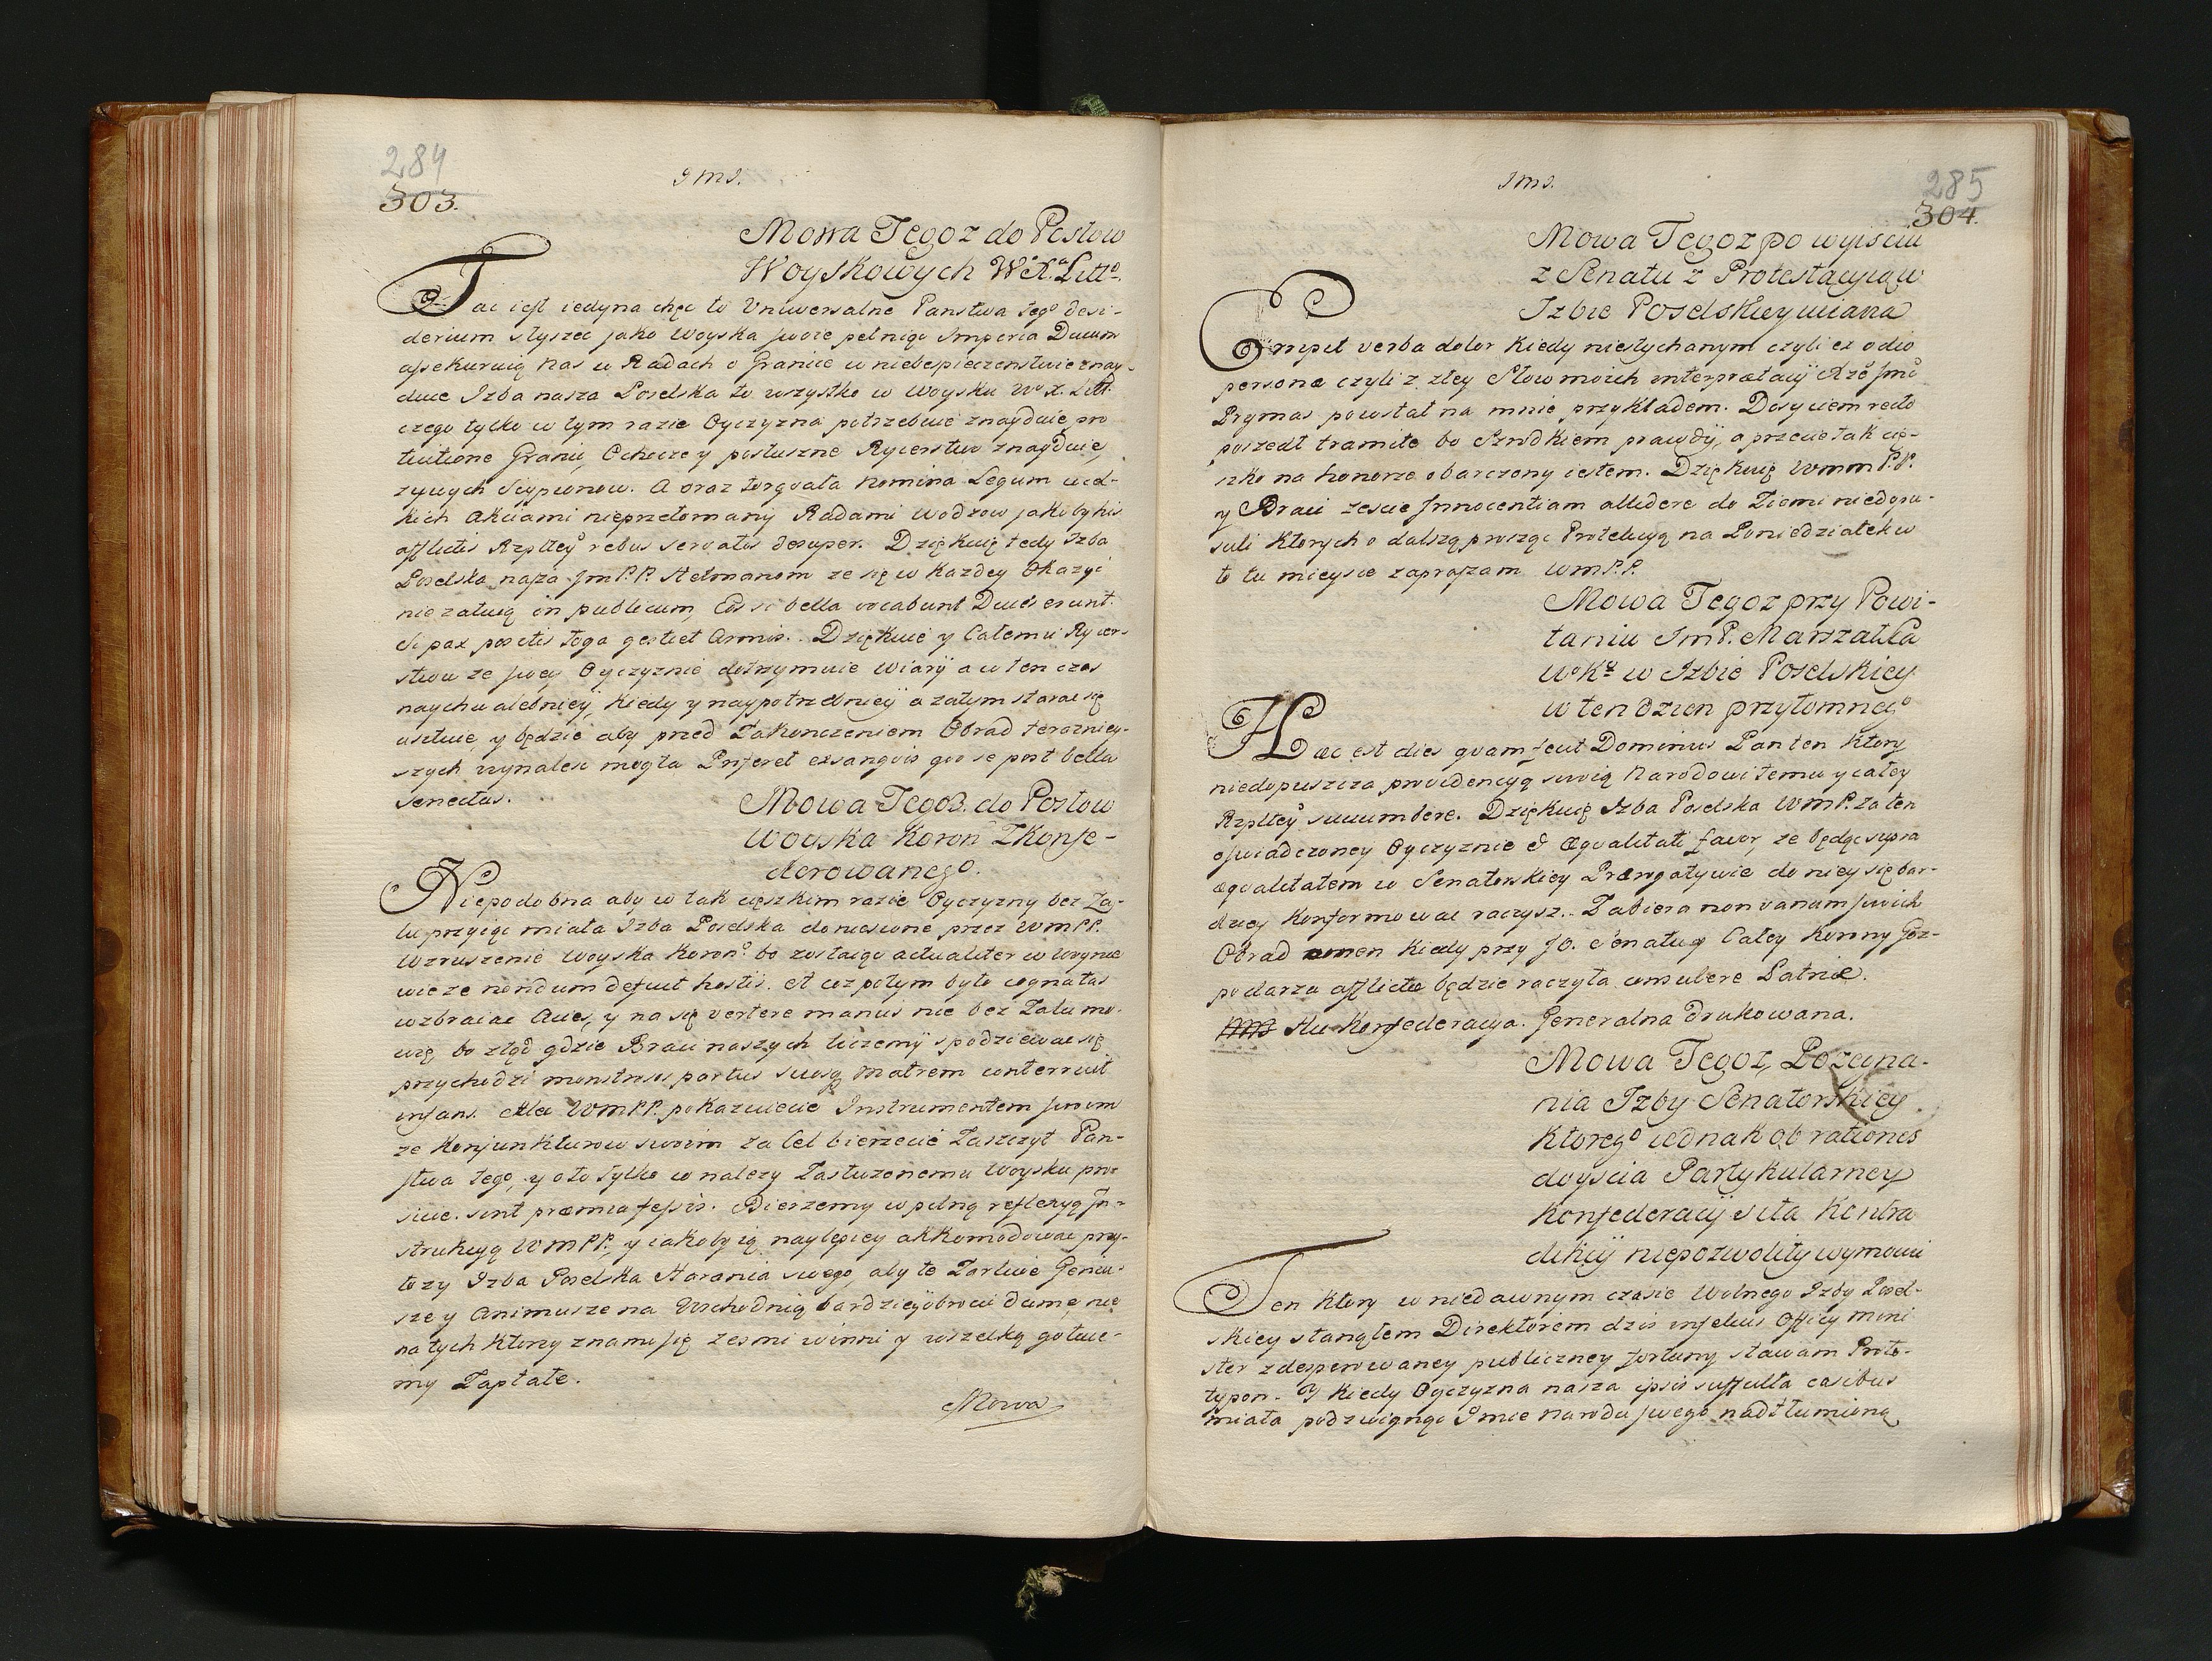 284
303.
Jms.
Mowa Tegoz do Posłow
Woyskowych W.X. Litto.
Tac iest iedyna chęc to Uniwersalne Panstwa tego desi-
derium słyszec jako Woyska swoie pełniąc Imperia Ducum
assekuruią nas w Radach o Granice w niebespieczenstwie znay-
duie Izba nasza Poselska to wszystko w Woysku W.X. Litt.
czego tylko w tym razie Oyczyzna potrzebuie znayduie pro
tuitione Granic, Ochocze y posłuszne Rycerstwo znayduie,
zywych Scypionow. A oraz torquata nomina Legum wiel-
kich Akciami nieprzełomany Radami Wodzow jakoby his
afflictis Rzpltey rebus servatos desuper. Dziękuię tedy Izba
Poselska nasza Jm P.P. Hetmanom ze się w Kazdey Okazyi
nie załuią in publicum, Eos si bella vocabunt Duces erunt.
Si pax poscitis Toga gestiet Armis. Dziękuie y Całemu Rycer-
stwu ze swey Oyczyznie dotrzymuie Wiary a w ten czas
naychwalebniey, Kiedy y naypotrzebniey a zatym starac się
usiłuie, y będzie aby przed Zakonczeniem Obrad teraznie-
szych wynalesc mogła Proferet exsanguis quo se post bella
senectus.
Mowa Tegoz do Posłow
Woyska Koron Zkonfe-
derowanego.
Niepodobna aby w tak cięszkim razie Oyczyzny bez Za-
lu przyiąc miała Izba Poselska doniesione przez WmPP.
Wzruszenie Woyska Koron. bo zostaiąc actualiter w Woynie
wieze nondum defuit hostis. et coz potym było cognatas
wzbraiac Acies, y na się vertere manus nie bez Zalu mo-
wię, bo ztąd gdzie Braci naszych liczemy spodziewac się
przychodzi monstrosos partus suosq matrem conterruit
infans. Ale WmPP. pokazuiecie Instrumentem swoim
ze Konjunkturow swoim za Cel bierzecie Zaszczyt Pan-
stwa tego, y o to tylko co nalezy Zasłuzonemu Woysku pro-
sicie. sint præmia fessis. Bierzemy w pilną reflexyą In-
strukcyą WmPP. y iakoby ią naylepiey akkomodowac przy-
łozy Izba Poselska Starania swego, aby te Zarliwe Geniu-
sze y Animusze na Wschodnią bardziey obrocic dumę, nie
na tych Ktorzy znamy się zesmi winni y wszelką gotuie-
my Zapłate.
Mowa
285
304.
Jms.
Mowa Tegoz po wyisciu
z Senatu z Protestacyią w
Izbie Poselskiey miana
Empit verba dolor Kiedy niesłychanym czyli ex odio
persona czyli z złey Słow moich interpretacij Xże Jmc
Prymas powstał na mnie przykładem. Dosyciem recto
poszedł tramite bo Szrodkiem prawdy, a przecie tak cię-
szko na honorze obarczony iestem. Dziękuię Wmm P.P.
y Braci zescie Innocentiam allidere do Ziemi niedopu-
scili Ktorych o dalszą prosząc Protekcyą na Poniedziałek w
to tu mieysce zapraszam WmP.P.
Mowa Tegoz przy Powi-
taniu JmP. Marszałka
W.K. w Izbie Poselskiey
w ten dzien przytomnego
Hæc est dies quam fecit Dominus Pan ten Ktory
niedopuszcza providencyą swoią Narodowi temu y całey
Rzpltey succumbere. Dziękuię Izba Poselska WmP. za ten
oswiadczoney Oyczyznie & Æqualitati favor, ze będąc supra
æqualitatem w Senatorskiey Prærogatywie do niey się bar-
dziey Konformowac raczysz. Zabiera non vanum swoich
Obrad omen Kiedy przy JO. Senatu y Całey Korony Gos-
podarza afflictæ będzie raczyła consulere Patriæ.
Hu Konfederacya Generalna Drukowana.
Mowa Tegoz, Pozegna-
nia Izby Senatorskiey
Ktorego iednak ob rationes
doyscia Partykularney
Konfederacij siła Kontra
dikcij niepozwoliły wymowic
Ten Ktory w niedawnym czasie Wolnego Izby Posel-
skiey stanąłem Direktorem dzis infelicis Officij mini
ster zdesperowaney publiczney fortuny stawam Proto-
typon. Y Kiedy Oyczyzna nasza ipsis suffulta casibus
miała podzwignąc Imie narodu swego nadtłumioną